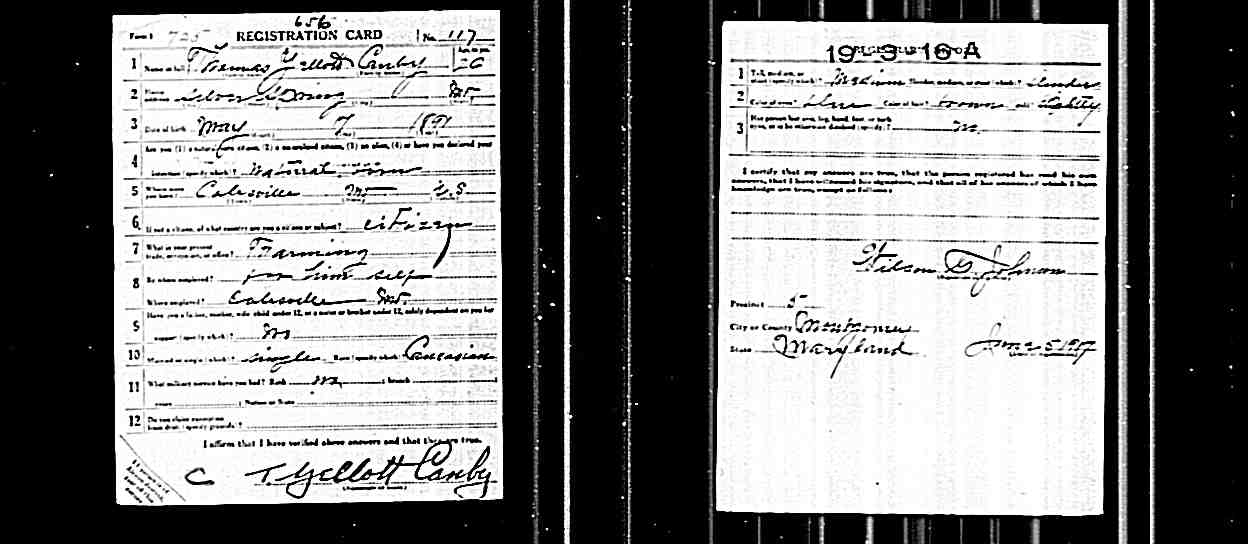 656
Form 1 725 REGISTRATION CARD No. 117
1 Name in full Thomas Yellott Canby Age, in yrs. 26
2 Home address Silver Spring Md.
3 Date of birth May 7 1891
4 Are you (1) a natural born citizen, (2) a naturalized citizen, (3) an alien, (4) or have you declared your
intention (specify which)? Natural born
5 Where were you born? Colesville Md U.S
6 If not a citizen, of what country are you a citizen or subject? citizen
7 What is your present trade, occupation, or office? Farming
8 By whom employed? for him self
Where employed? Colesville Md.
9 Have you a father, mother, wife, child under 12, or a sister or brother under 12, solely dependent on you for
support (specify which)? No
10 Married or single (which)? single Race (specify which)? Caucasian
11 What military service have you had? Rank no branch
years Nation or State
12 Do you claim exemption from draft (specify grounds)?
I affirm that I have verified above answers and that they are true.
C T Yellott Canby
19-3-16-A
1 Tall, medium, or short (specify which)? Medium Slender, medium, or stout (which)? slender
2 Color of eyes? blue Color of hair? brown Bald? slightly
3 Has person lost arm, leg, hand, foot, or both eyes, or is he otherwise disabled (specify)? no
I certify that my answers are true, that the person registered has read his own
answers, that I have witnessed his signature, and that all of his answers of which I have
knowledge are true, except as follows:
Wilson G. Johnson
Precinct 5
City or County Montgomery
State Maryland June 5 1917